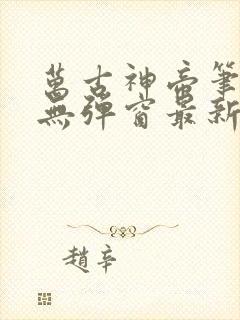 萬古神帝筆
無彈窗最新
趙辛